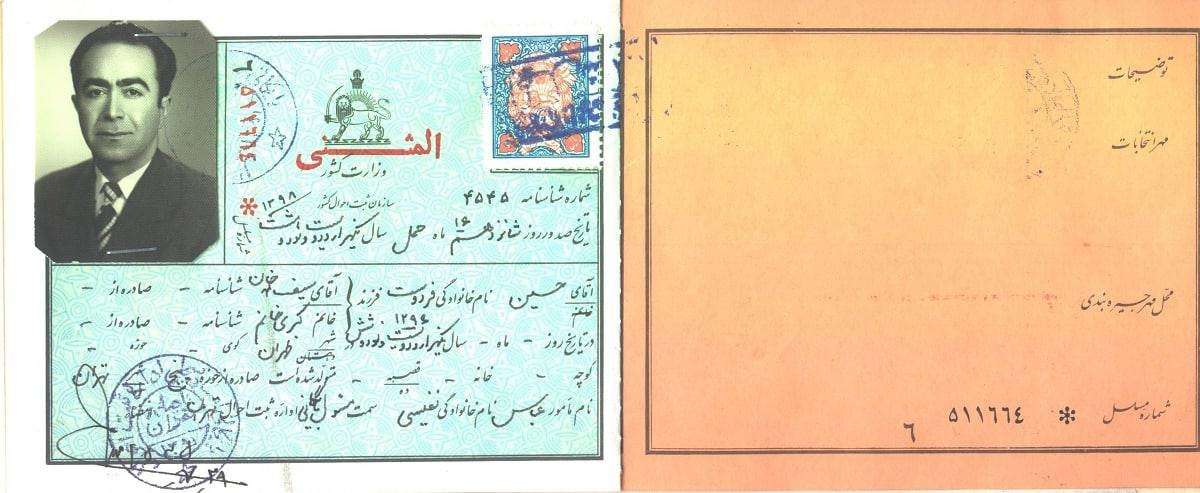 المثنی
وزارت کشور
سازمان ثبت احوال کشور
شماره شناسنامه ۴۵۴۵
۱۲۹۸
تاریخ صدور روز شانزدهم ۱۶ ماه حمل سال یکهزار و دویست و نود و هشت
۶ ۵۱۱۶۶۴ *
آقای حسین نام خانوادگی فردوست فرزند آقای سیف اله خان شناسنامه - صادره از -
خانم
خانم کبری خانم شناسنامه - صادره از -
در تاریخ روز - ماه - سال یکهزار و دویست و نود و شش ۱۲۹۶ در شهر طهران کوی - حوزه -
دهستان
کوچه - خانه - قصبه - متولد شده است صادره از حوزه پنج تهران
ده
نام مأمور عباس نام خانوادگی نفیسی سمت مسئول بایگانی اداره ثبت احوال تهران امضاء
توضیحات
مهر انتخابات
محل مهر جیره بندی
شماره مسلسل * ۵۱۱۶۶۴
۶